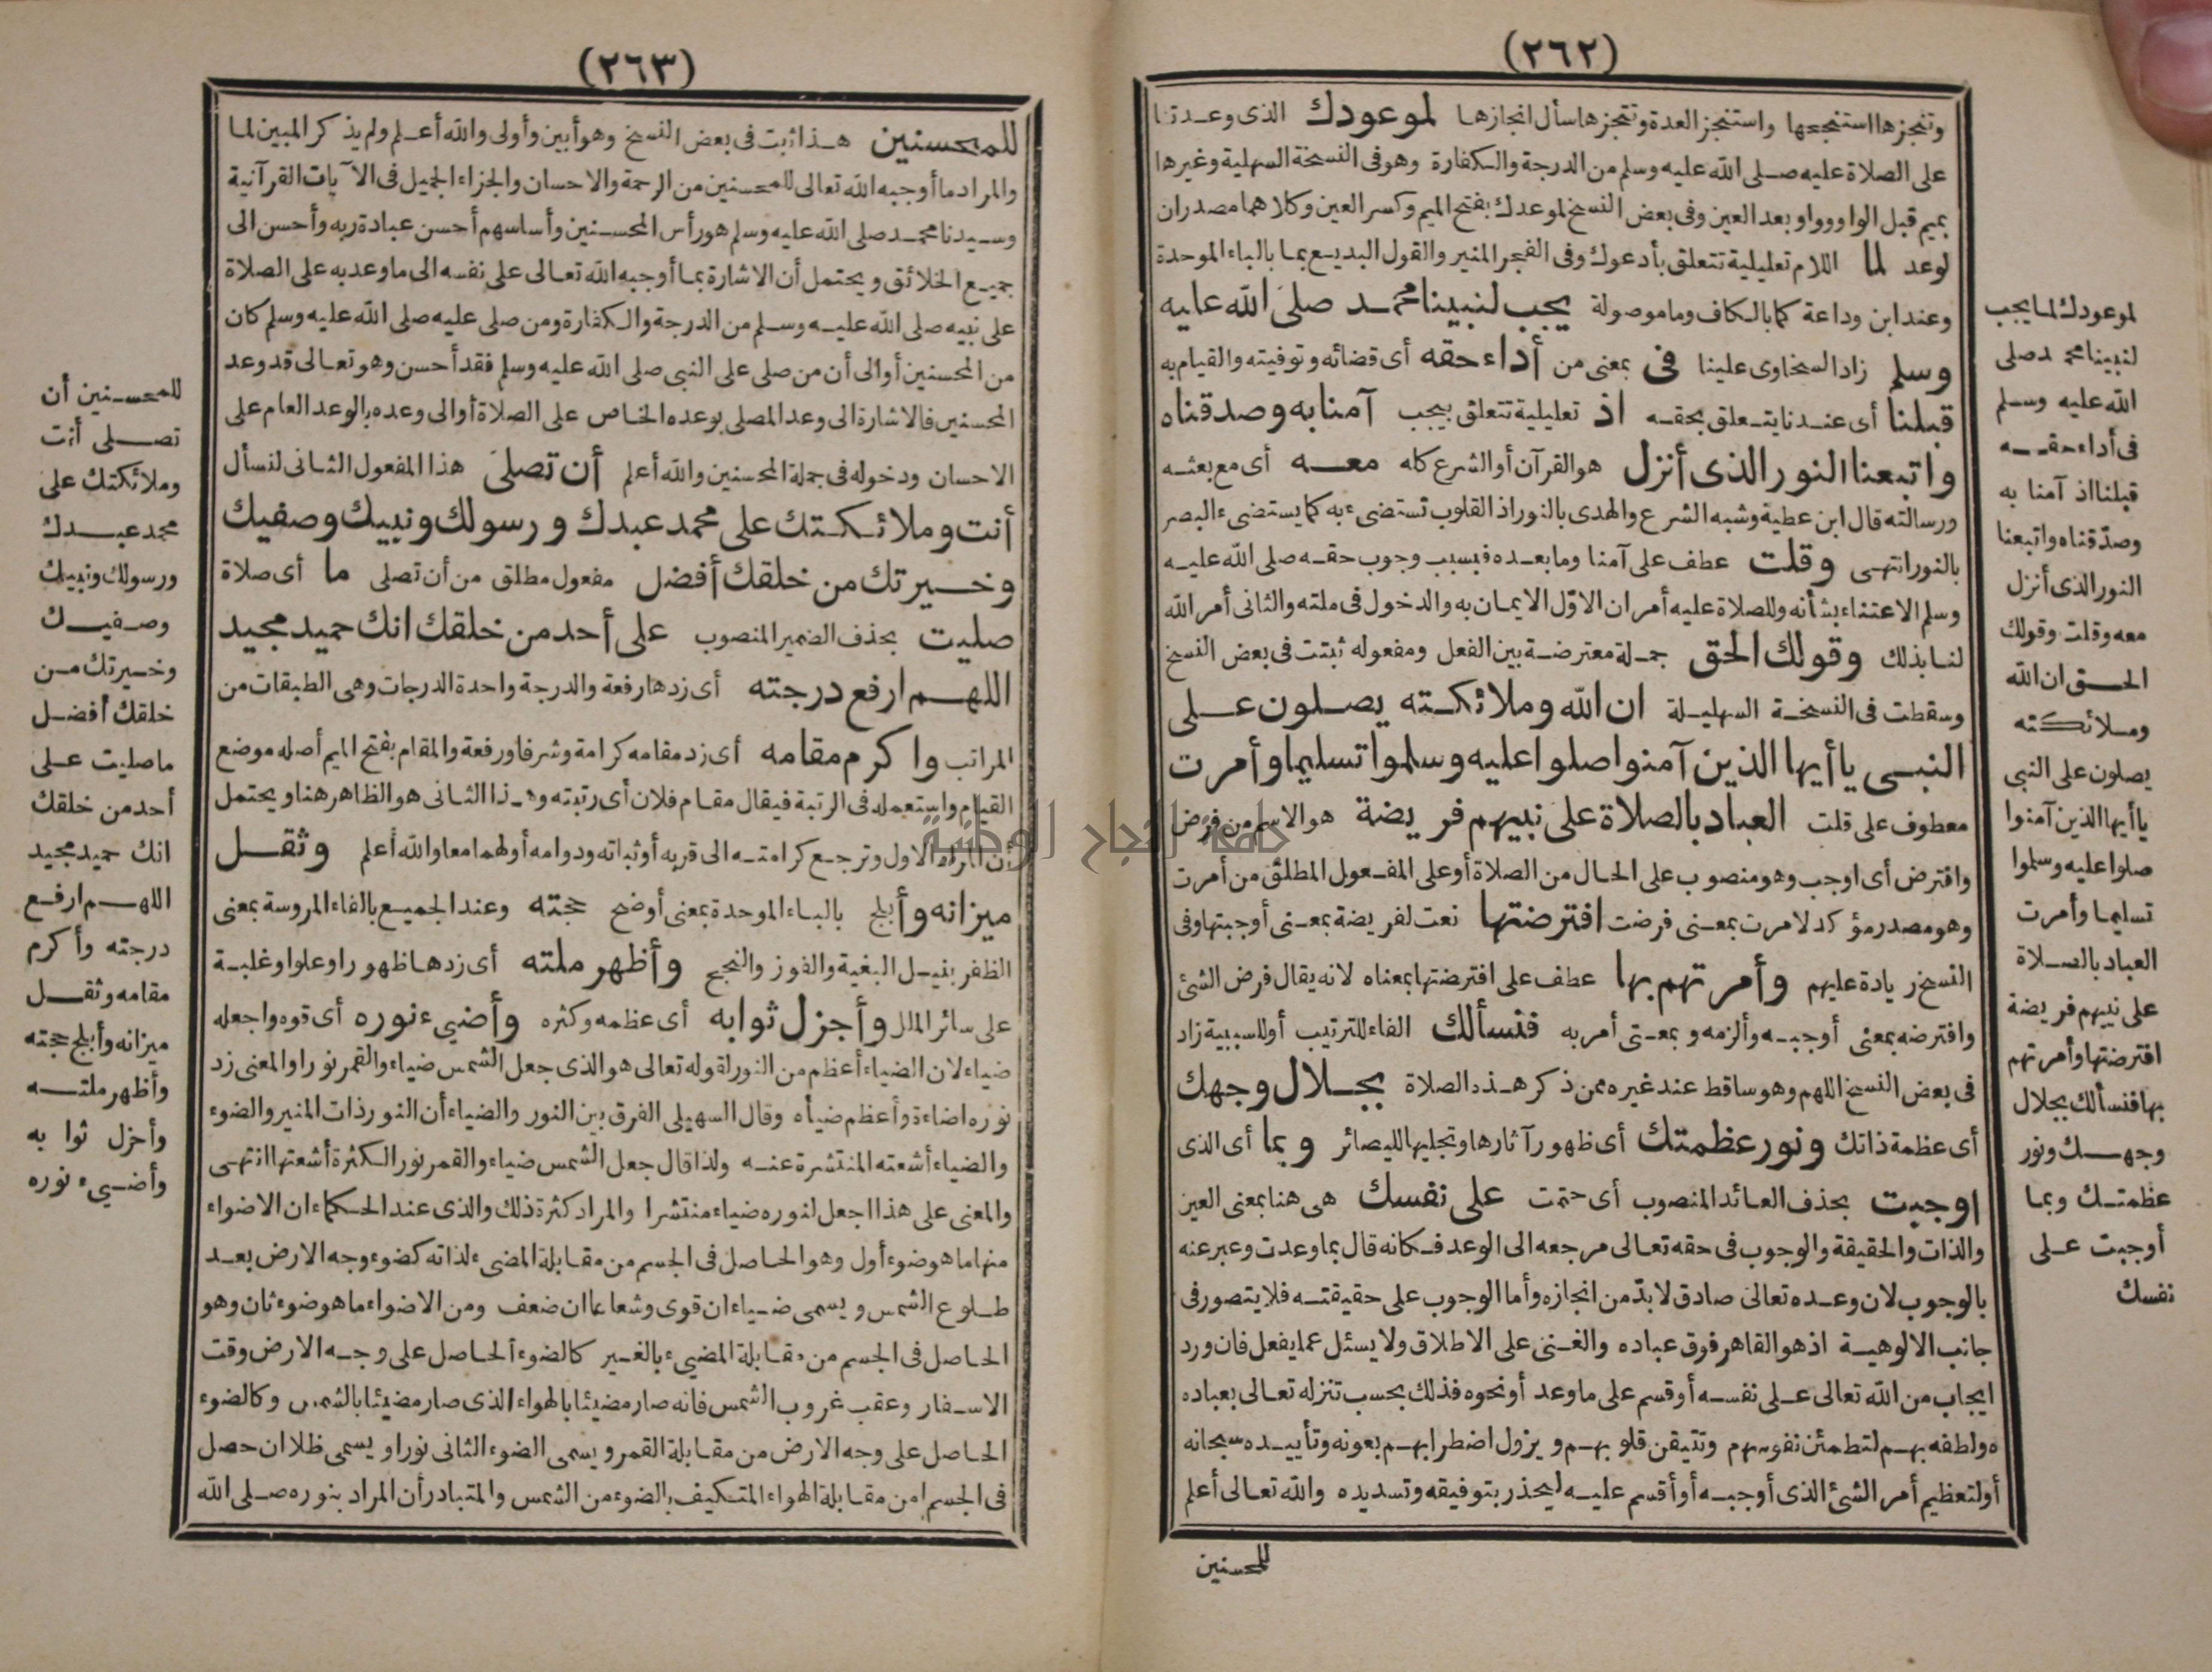 (٢٦٢)
وتنجزها استنجحها واستنجز العدة وتنجزها سأل انجازها لموعودك الذى وعدتنا
على الصلاة عليه صلى الله عليه وسلم من الدرجة والكفارة وهو فى النسخة السهلية وغيرها
بميم قبل الواو وواو بعد العين وفى بعض النسخ لموعدك بفتح الميم وكسر العين وكلاهما مصدران
لوعد لما اللام تعليلية تتعلق بأدعوك وفى الفجر المنير والقول البديع بما بالباء الموحدة
وعند ابن وداعة كما بالكاف وما موصولة يجب لنبينا محمد صلى الله عليه
وسلم زاد السخاوى علينا فى بمعنى من أداء حقه أى قضائه وتوفيته والقيام به
قبلنا أى عندنا يتعلق بحقه اذ تعليلية تتعلق بيجب آمنا به وصدقناه
واتبعنا النور الذى أنزل هو القرآن أو الشرع كله معه أى مع بعثه
ورسالته قال ابن عطية وشبه الشرع والهدى بالنور اذ القلوب تستضىء به كما يستضىء البصر
بالنور انتهى وقلت عطف على آمنا وما بعده فبسبب وجوب حقه صلى الله عليه
وسلم الاعتناء بشأنه وللصلاة عليه أمران الاوّل الايمان به والدخول فى ملته والثانى أمر الله
لنا بذلك وقولك الحق جملة معترضة بين الفعل ومفعوله ثبتت فى بعض النسخ
وسقطت فى النسخة السهلية ان الله وملائكته يصلون على
النبى يا أيها الذين آمنوا صلوا عليه وسلموا تسليما وأمرت
معطوف على قلت العباد بالصلاة على نبيهم فريضة هو الاسم من فرض
وافترض أى اوجب وهو منصوب على الحال من الصلاة أو على المفعول المطلق من أمرت
وهو مصدر مؤكد لامرت بمعنى فرضت افترضتها نعت لفريضة بمعنى أوجبتها وفى
النسخ زيادة عليهم وأمرتهم بها عطف على افترضتها بمعناه لانه يقال فرض الشئ
وافترضه بمعنى أوجبه وألزمه وبمعنى أمر به فنسألك الفاء للترتيب أو للسببية زاد
فى بعض النسخ اللهم وهو ساقط عند غيره ممن ذكر هذه الصلاة بجلال وجهك
أى عظمة ذاتك ونور عظمتك أى ظهور آثارها وتجليها للبصائر وبما أى الذى
اوجبت بحذف العائد المنصوب أى حتمت على نفسك هى هنا بمعنى العين
والذات والحقيقة والوجوب فى حقه تعالى مرجعه الى الوعد فكانه قال بما وعدت وعبر عنه
بالوجوب لان وعده تعالى صادق لا بدّ من انجازه وأما الوجوب على حقيقته فلا يتصور فى
جانب الالوهية اذ هو القاهر فوق عباده والغنى على الاطلاق ولا يسئل عما يفعل فان ورد
ايجاب من الله تعالى على نفسه أو قسم على ما وعد أو نحوه فذلك بحسب تنزله تعالى بعباده
ولطفه بهم لتطمئن نفوسهم وتتيقن قلوبهم ويزول اضطرابهم بعونه وتأييده سبحانه
أو لتعظيم أمر الشئ الذى أوجبه أو أقسم عليه ليحذر بتوفيقه وتسديده والله تعالى أعلم
للمحسنين
لموعودك لما يجب
لنبينا محمد صلى
الله عليه وسلم
فى أداء حقه
قبلنا اذ آمنا به
وصدّقناه واتبعنا
النور الذى أنزل
معه وقلت وقولك
الحق ان الله
وملائكته
يصلون على النبى
يا أيها الذين آمنوا
صلوا عليه وسلموا
تسليما وأمرت
العباد بالصلاة
على نبيهم فريضة
افترضتها وأمرتهم
بها فنسألك بجلال
وجهك ونور
عظمتك وبما
أوجبت على
نفسك
(٢٦٣)
للمحسنين هذا ثبت فى بعض النسخ وهو أبين وأولى والله أعلم ولم يذكر المبين لما
والمراد ما أوجبه الله تعالى للمحسنين من الرحمة والاحسان والجزاء الجميل فى الآيات القرآنية
وسيدنا محمد صلى الله عليه وسلم هو رأس المحسنين وأساسهم أحسن عبادة ربه وأحسن الى
جميع الخلائق ويحتمل أن الاشارة بما أوجبه الله تعالى على نفسه الى ما وعد به على الصلاة
على نبيه صلى الله عليه وسلم من الدرجة والكفارة ومن صلى عليه صلى الله عليه وسلم كان
من المحسنين أو الى أن من صلى على النبى صلى الله عليه وسلم فقد أحسن وهو تعالى قد وعد
المحسنين فالاشارة الى وعد المصلى بوعده الخاص على الصلاة أو الى وعده بالوعد العام على
الاحسان ودخوله فى جملة المحسنين والله أعلم أن تصلى هذا المفعول الثانى لنسأل
أنت وملائكتك على محمد عبدك ورسولك ونبيك وصفيك
وخيرتك من خلقك أفضل مفعول مطلق من أن تصلى ما أى صلاة
صليت بحذف الضمير المنصوب على أحد من خلقك انك حميد مجيد
اللهم ارفع درجته أى زدها رفعة والدرجة واحدة الدرجات وهى الطبقات من
المراتب واكرم مقامه أى زد مقامه كرامة وشرفا ورفعة والمقام بفتح الميم أصله موضع
القيام واستعمله فى الرتبة فيقال مقام فلان أى رتبته وهذا الثانى هو الظاهر هنا ويحتمل
أن المراد الاول وترجع كرامته الى قربه أو ثباته ودوامه أو لهما معا والله أعلم وثقل
ميزانه وأبلج بالباء الموحدة بمعنى أوضح حجته وعند الجميع بالفاء المروسة بمعنى
الظفر بنيل البغية والفوز والنجح وأظهر ملته أى زدها ظهورا وعلوا وغلبة
على سائر الملل وأجزل ثوابه أى عظمه وكثره وأضىء نوره أى قوه واجعله
ضياء لان الضياء أعظم من النور لقوله تعالى هو الذى جعل الشمس ضياء والقمر نورا والمعنى زد
نوره اضاءة وأعظم ضيأه وقال السهيلى الفرق بين النور والضياء أن النور ذات المنير والضوء
والضياء أشعته المنتشرة عنه ولذا قال جعل الشمس ضياء والقمر نور الكثرة أشعتها انتهى
والمعنى على هذا اجعل لنوره ضياء منتشرا والمراد كثرة ذلك والذى عند الحكماء ان الاضواء
منها ما هو ضوء أول وهو الحاصل فى الجسم من مقابلة المضىء لذاته كضوء وجه الارض بعد
طلوع الشمس ويسمى ضياء ان قوى وشعاعا ان ضعف ومن الاضواء ما هو ضوء ثان وهو
الحاصل فى الجسم من مقابلة المضىء بالغير كالضوء الحاصل على وجه الارض وقت
الاسفار وعقب غروب الشمس فانه صار مضيئا بالهواء الذى صار مضيئا بالشمس وكالضوء
الحاصل على وجه الارض من مقابلة القمر ويسمى الضوء الثانى نورا ويسمى ظلا ان حصل
فى الجسم من مقابلة الهواء المتكيف بالضوء من الشمس والمتبادر أن المراد بنوره صلى الله
للمحسنين أن
تصلى أنت
وملائكتك على
محمد عبدك
ورسولك ونبيك
وصفيك
وخيرتك من
خلقك أفضل
ما صليت على
أحد من خلقك
انك حميد مجيد
اللهم ارفع
درجته وأكرم
مقامه وثقل
ميزانه وأبلج حجته
وأظهر ملته
وأجزل ثوابه
وأضىء نوره
جامعة النجاح الوطنية